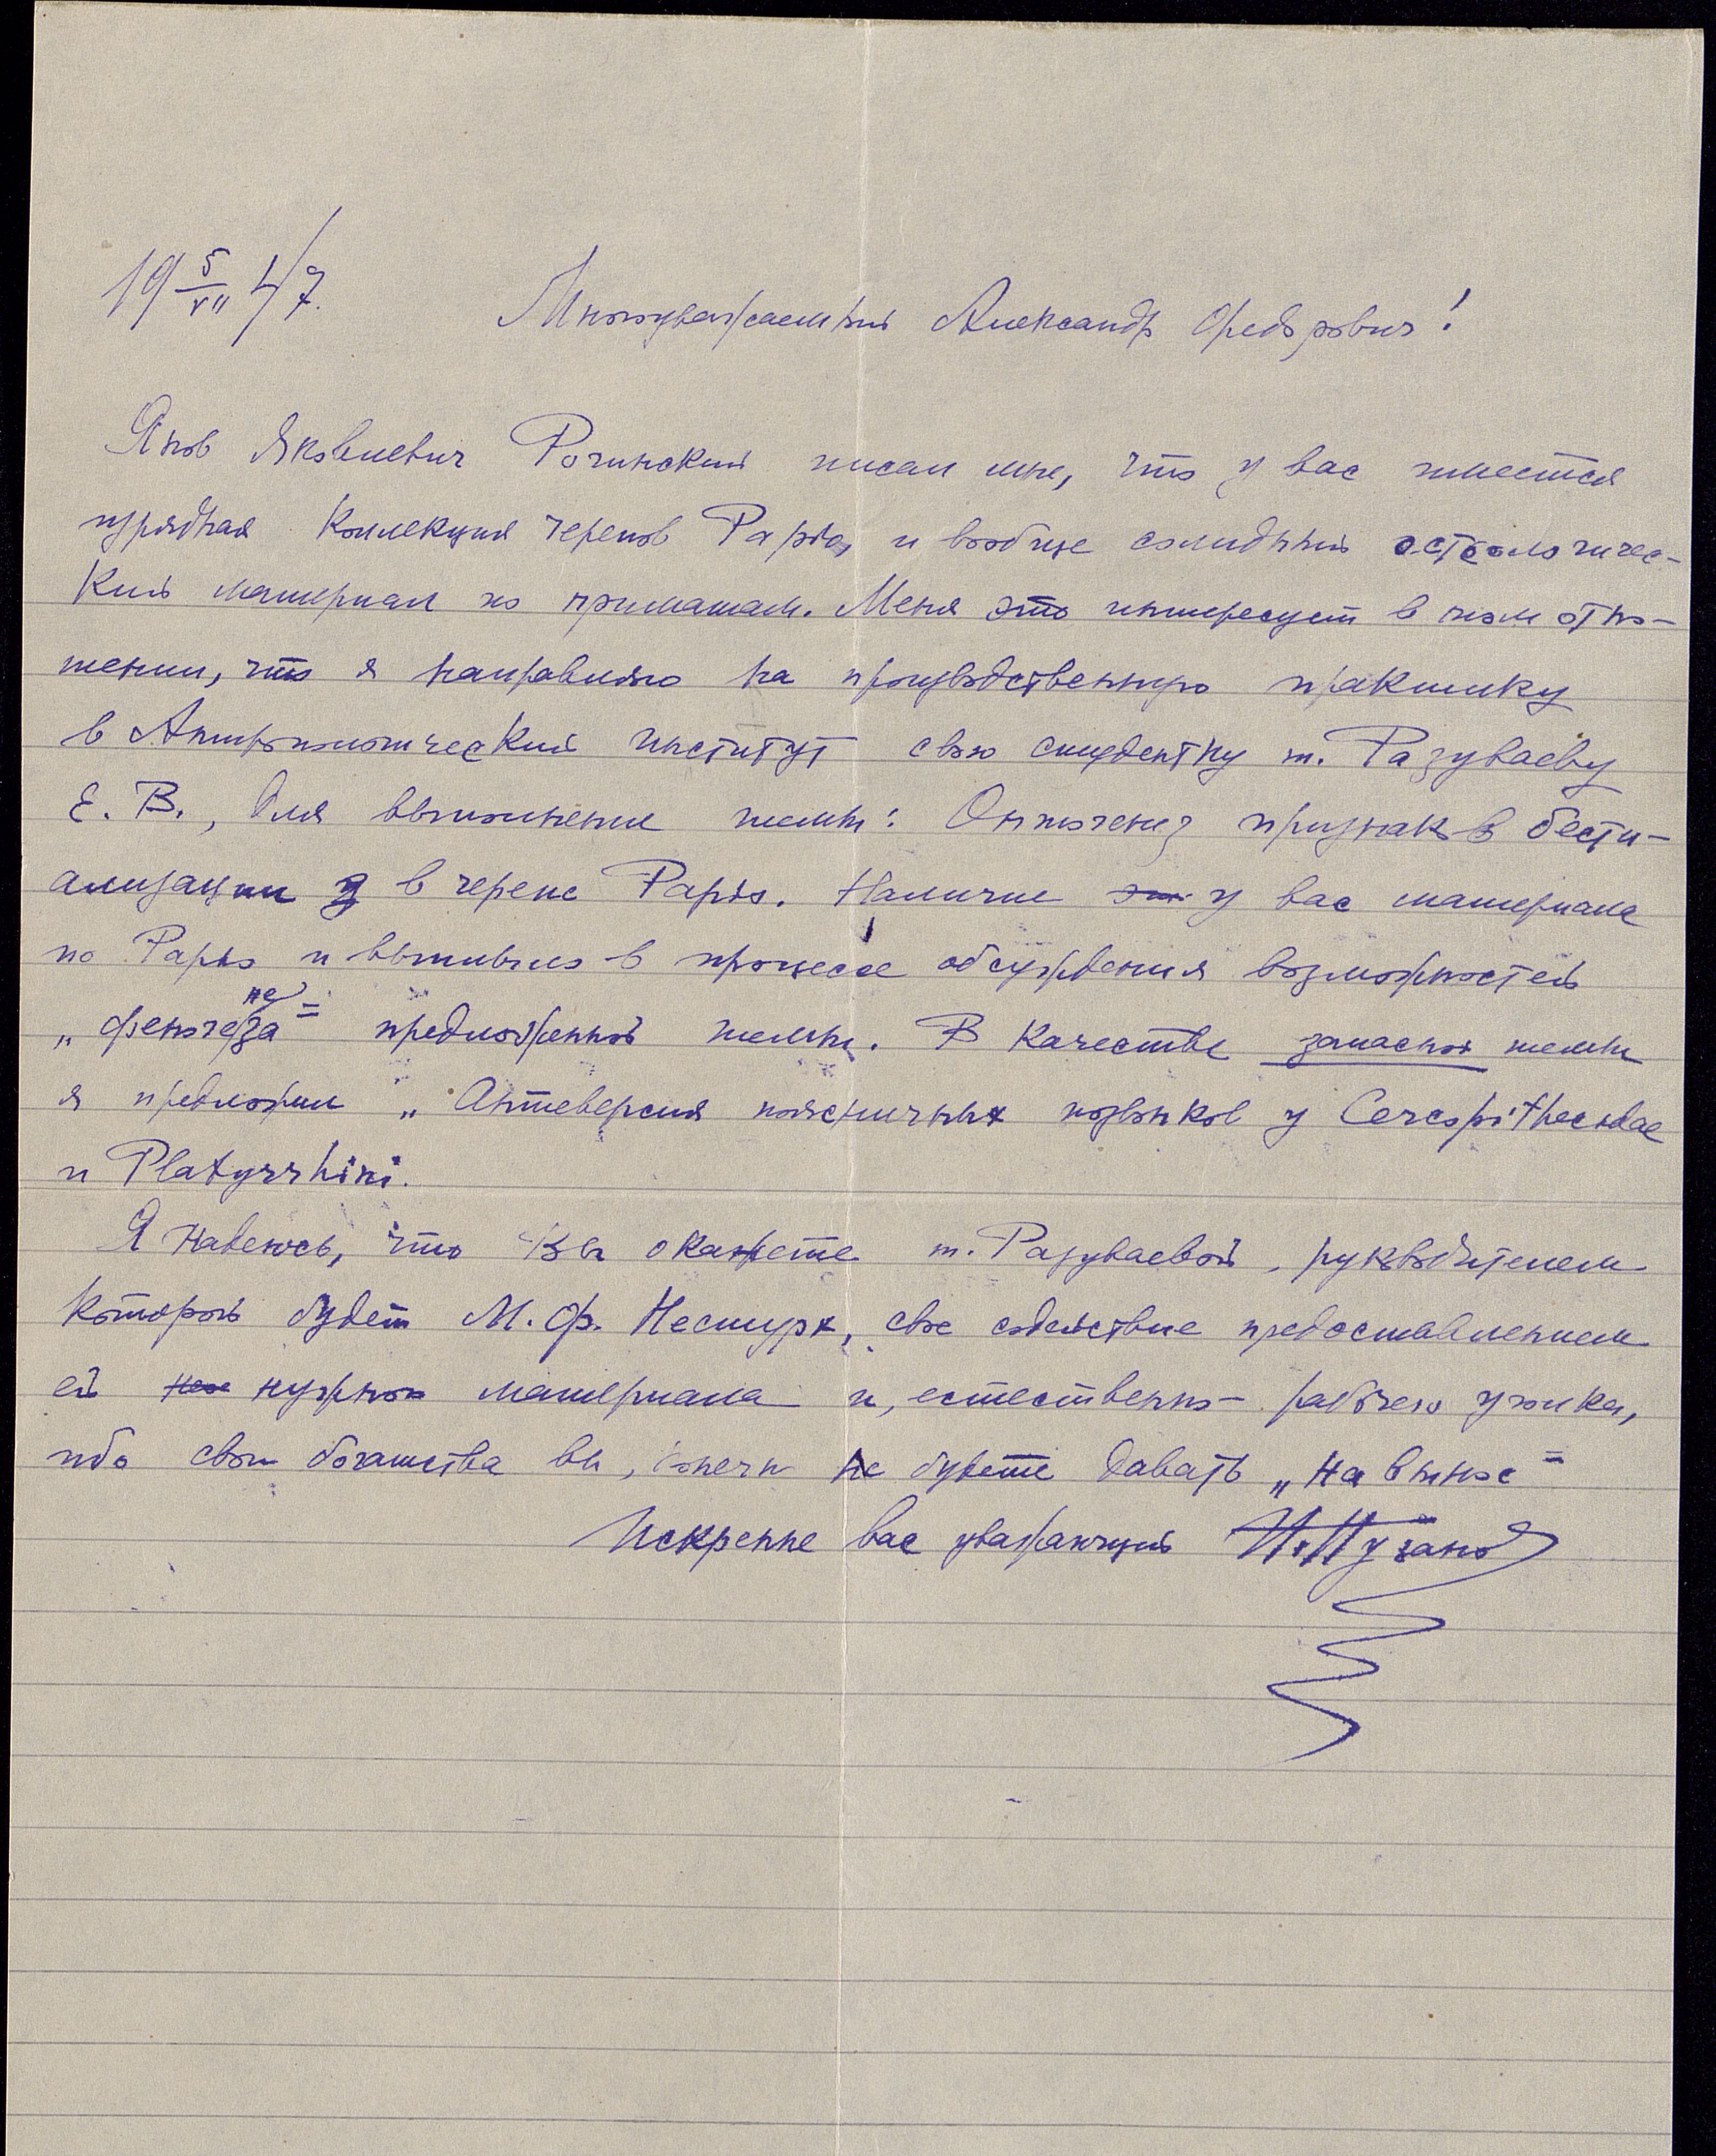 19 5/VII 47.
Многоуважаемый Александр Федорович!
Яков Яковлевич Рогинский писал мне, что у вас имеется
изрядная коллекция черепов Papio, и вообще солидный остеологичес-
кий материал по приматам. Меня это интересует в том отно-
шении, что я направляю на производственную практику
в Антропологический институт свою студентку т. Разуваеву
Е. В., для выполнения темы: Онтогенез признаков бести-
ализации в черепе Papio. Наличие у вас материала
по Papio и выяснилось в процессе обсуждения возможностей
„феногенеза" предложенной темы. В качестве запасной темы
я предложил „Антеверсия поясничных позвонков у Cercopithecidae
и Platyrrhini.
Я надеюсь, что Вы окажете т. Разуваевой, руководителем
которой будет М. Ф. Нестурх, свое содействие предоставлением
ей нужного материала и, естественно - рабочего уголка,
ибо свои богатства вы, конечно не будете давать „на вынос"
Искренне вас уважающий И. Пузанов